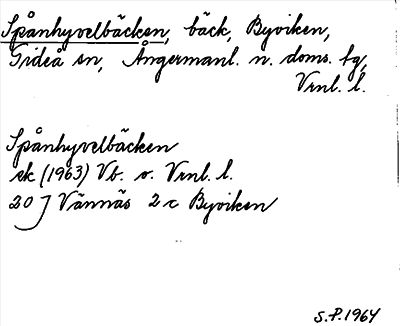 Spånhyvelbäcken, bäck, Byviken,
Gideå sn, Ångermanl. n. doms. fg,
Vrnl. l.
Spånhyvelbäcken
ek (1963) Vb. o. Vrnl. l.
20 J Vännäs 2 c Byviken
S.P. 1964